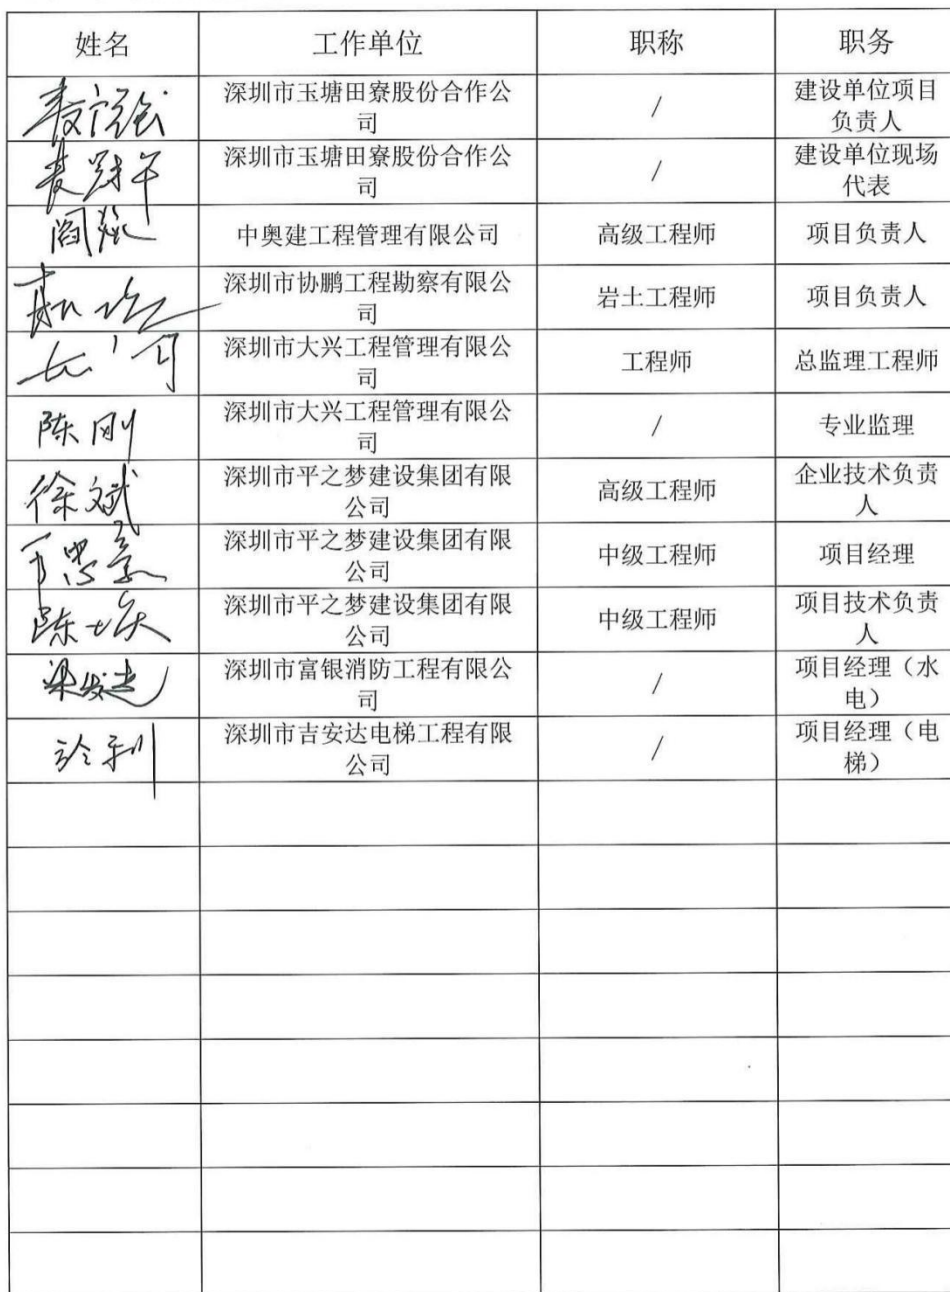 姓名 工作单位 职称 职务
深圳市玉塘田寮股份合作公 / 建设单位项目
司 负责人
深圳市玉塘田寮股份合作公 / 建设单位现场
司 代表
中奥建工程管理有限公司 高级工程师 项目负责人
深圳市协鹏工程勘察有限公 岩土工程师 项目负责人
司
深圳市大兴工程管理有限公 工程师 总监理工程师
司
陈刚 深圳市大兴工程管理有限公 / 专业监理
司
徐斌 深圳市平之梦建设集团有限 高级工程师 企业技术负责
公司 人
深圳市平之梦建设集团有限 中级工程师 项目经理
公司
深圳市平之梦建设集团有限 中级工程师 项目技术负责
公司 人
深圳市富银消防工程有限公 / 项目经理（水
司 电）
深圳市吉安达电梯工程有限 / 项目经理（电
公司 梯）